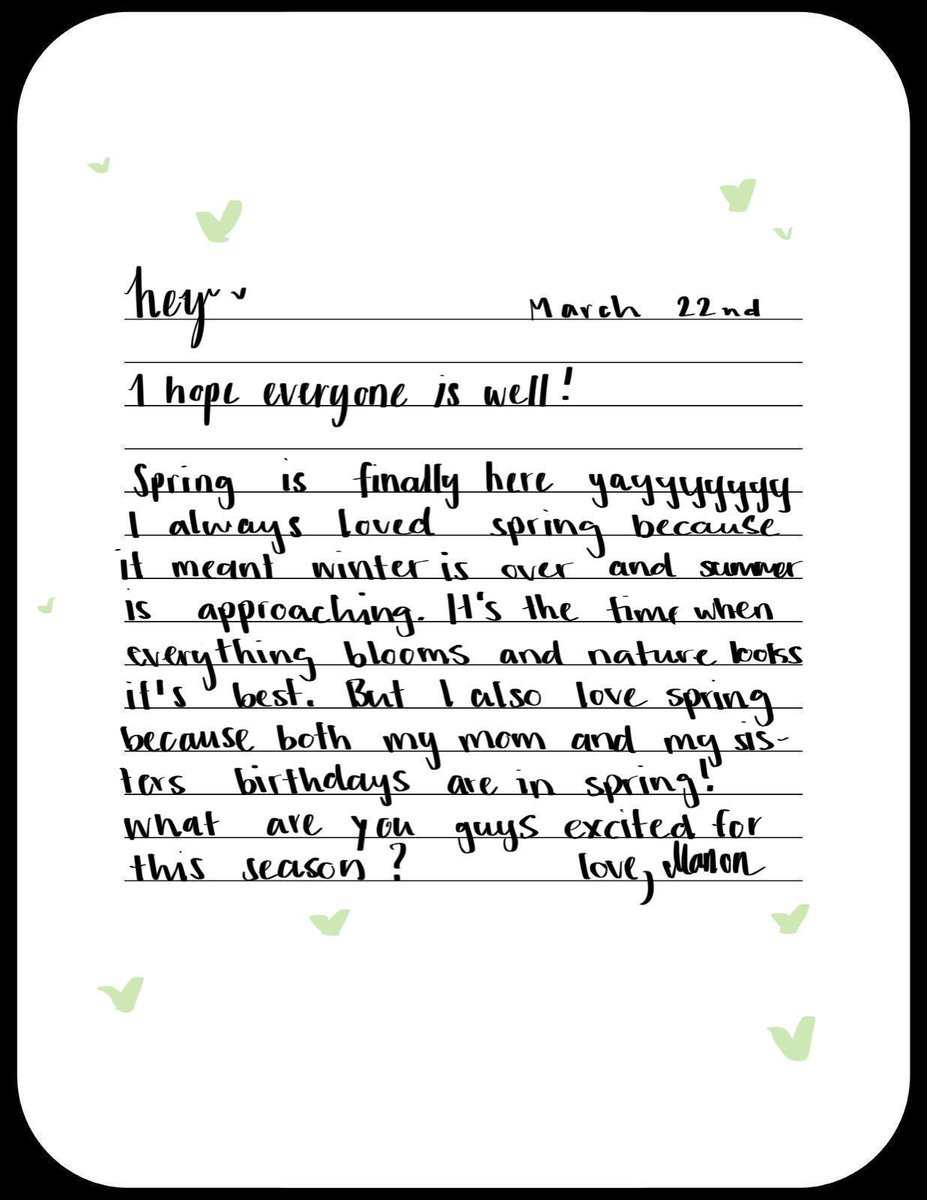 hey~ March 22nd
I hope everyone is well!
Spring is finally here yayyyyyyyy
I always loved spring because
it meant winter is over and summer
is approaching. It's the time when
everything blooms and nature looks
it's best. But I also love spring
because both my mom and my sis-
ters birthdays are in spring!
what are you guys excited for
this season? love, Manon